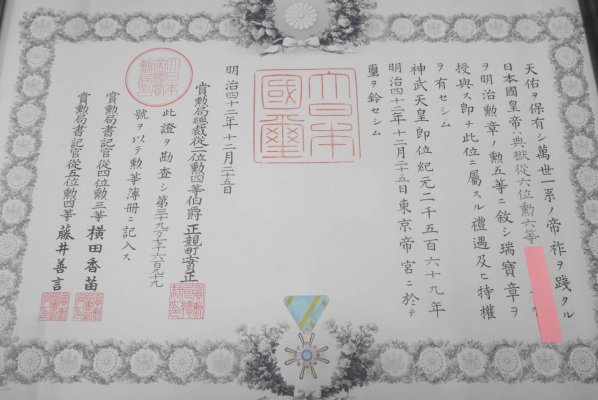 天佑ヲ保有シ萬世一系ノ帝祚ヲ踐タル
日本國皇帝ハ典獄從六位勲六等
ヲ明治勲章ノ勲五等ニ敘シ瑞寶章ヲ
授與ス即チ此位ニ屬スル禮遇及ヒ特權
ヲ有セシム
神武天皇即位紀元二千五百六十九年
明治四十二年十二月二十五日東京帝宮ニ於テ
璽ヲ鈐セシム
大日本國璽
明治四十二年十二月二十五日
賞勲局總裁從二位勲四等伯爵正親町實正
此證ヲ勘査シ第三十九万六百九十九
號ヲ以テ勲等簿册ニ記入ス
賞勲局書記官從四位勲三等横田香苗
賞勲局書記官從五位勲四等藤井善言